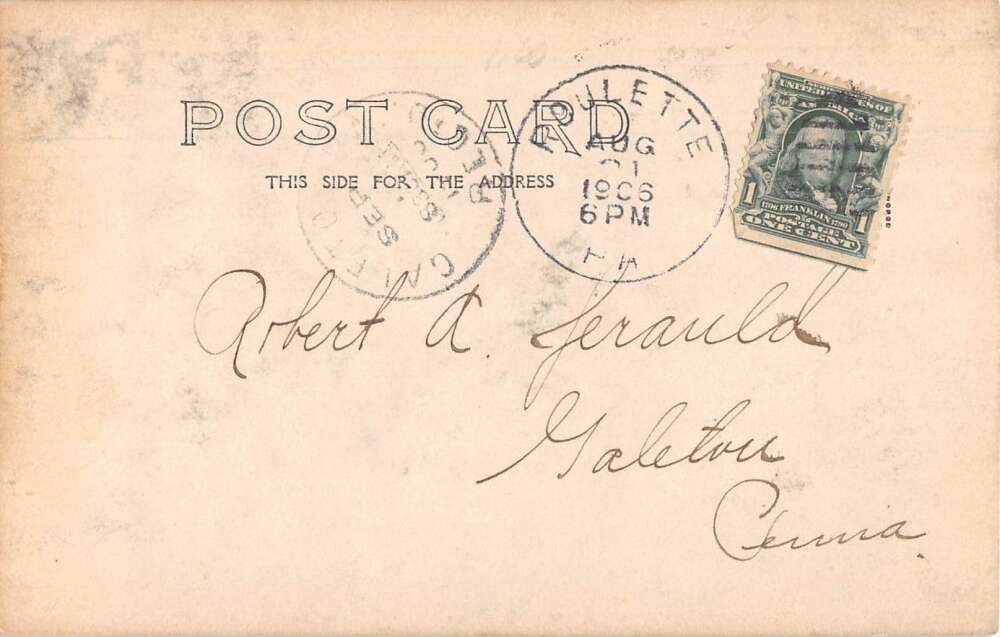 POST CARD
THIS SIDE FOR THE ADDRESS
ROULETTE
AUG
1906
6PM
PA
GALETO
SEP
REC'D
UNITED STATES OF
AMERICA
1 1706 FRANKLIN 1790 1
POSTAGE
ONE CENT
Robert A. Gerauld
Galeton
Penna.